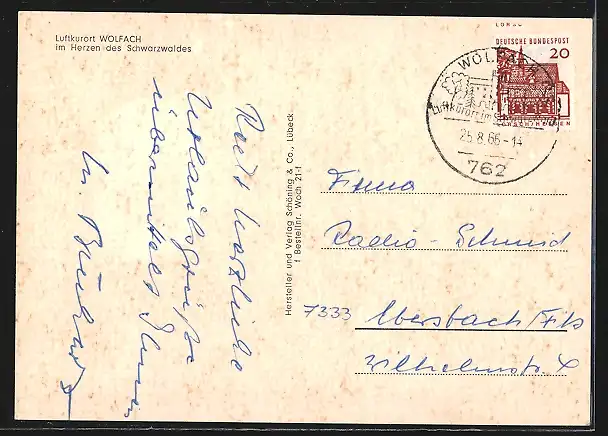 Luftkurort WOLFACH
im Herzen des Schwarzwaldes
Recht herzliche
Urlaubsgrüße
übermittelt Ihnen
Hersteller und Verlag Schöning & Co., Lübeck
Bestellnr. Woch 21
LORSC
DEUTSCHE BUNDESPOST
20
WOLFACH
Luftkurort im
25.8.66-14
762
Firma
Radio-Schmid
7333 Ebersbach/Fils
Wilhelmstr. 4